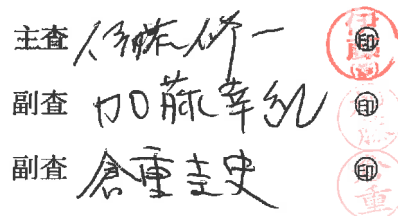 主査 伊藤修一 ㊞
副査 加藤幸紀 ㊞
副査 倉重圭史 ㊞